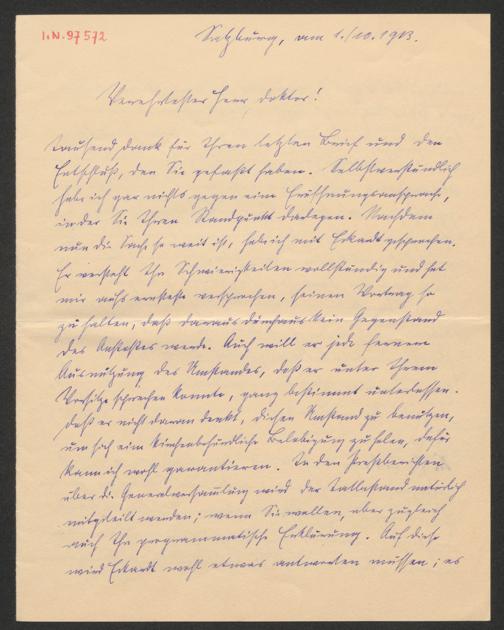 I.N. 97572
Salzburg, am 1./10. 1913.
Verehrtester Herr Doktor!
Tausend Dank für Ihren letzten Brief und den
Entschluß, den Sie gefaßt haben. Selbstverständlich
habe ich gar nichts gegen eine Eröffnungsansprache,
in der Sie Ihren Standpunkt darlegen. Nachdem
nun die Sache so weit ist, habe ich mit Eckardt gesprochen.
Er versteht Ihre Schwierigkeiten vollständig und hat
mir aufs ernsteste versprochen, seinen Vortrag so
zu halten, daß daraus durchaus kein Gegenstand
des Anstoßes werde. Auch will er jede fernere
Ausnützung des Umstandes, daß er unter Ihrem
Vorsitze sprechen konnte, ganz bestimmt unterlassen.
Daß er nicht daran denkt, diesen Umstand zu benützen,
um sich eine kirchenbehördliche Belobigung zu holen, dafür
kann ich wohl garantieren. In den Preßberichten
über die Generalversammlung wird der Tatbestand natürlich
mitgeteilt werden; wenn Sie wollen, aber zugleich
auch Ihre programmatische Erklärung. Auf diese
wird Eckardt wohl etwas antworten müssen; es